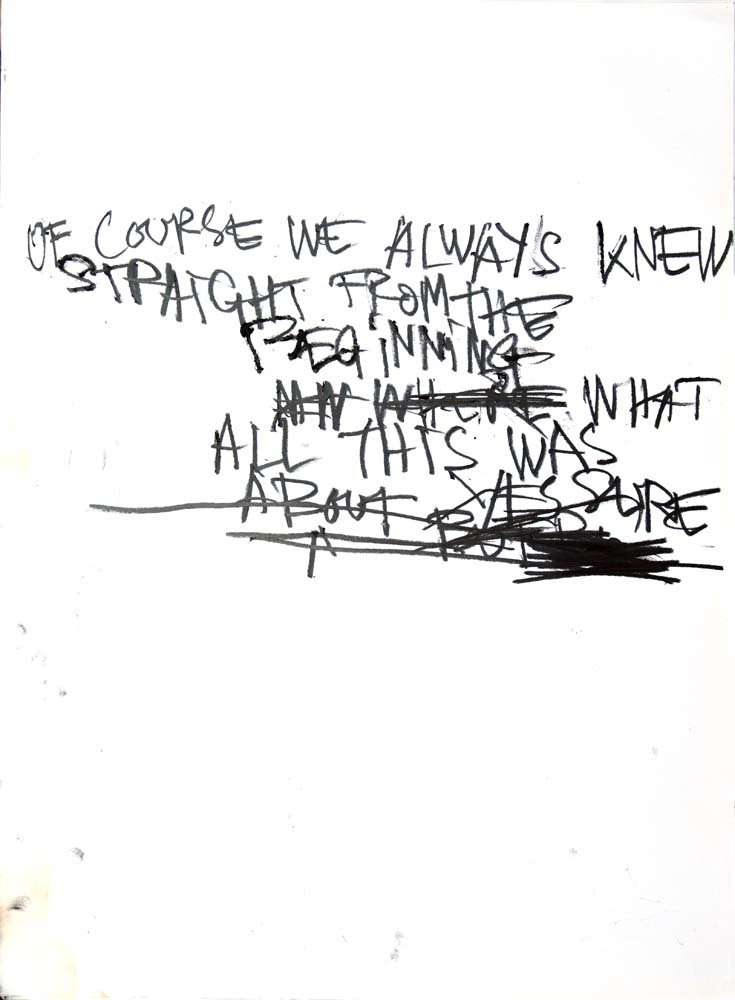 OF COURSE WE ALWAYS KNEW
STRAIGHT FROM THE
BEGINNING
WHAT
ALL THIS WAS
ABOUT YES SURE